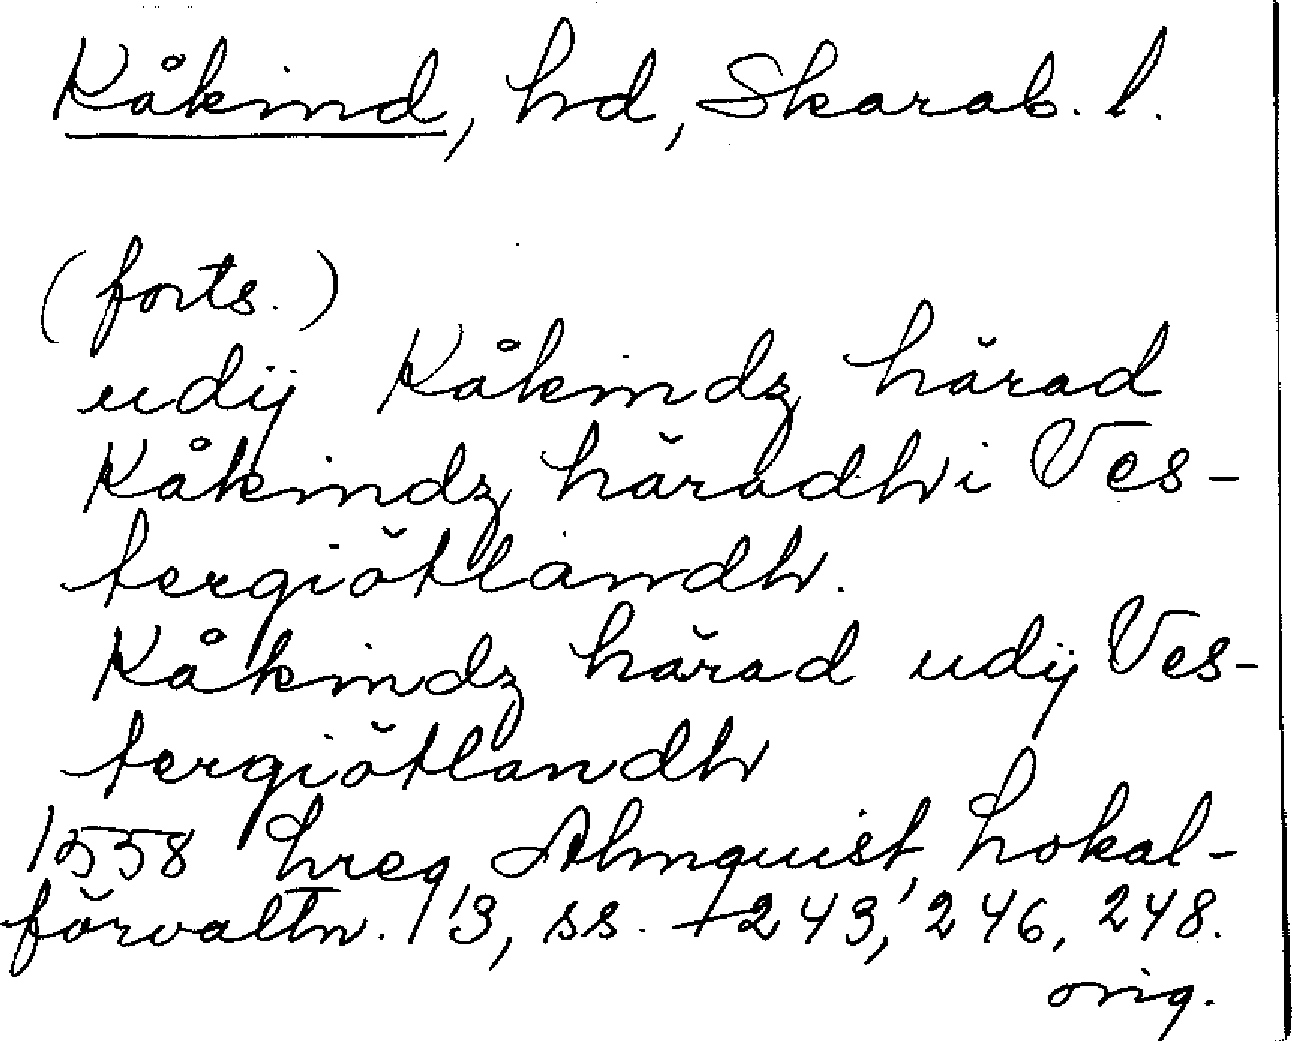 Kåkind, hd, Skarab. l.
(forts.)
udij Kåkindz härad
Kåkindz häradh i Ves-
tergiötlandh.
Kåkindz härad udij Ves-
tergiötlandh
1558 hreg Almquist, Lokal-
förvaltn. 13, ss. +243, 246, 248.
orig.